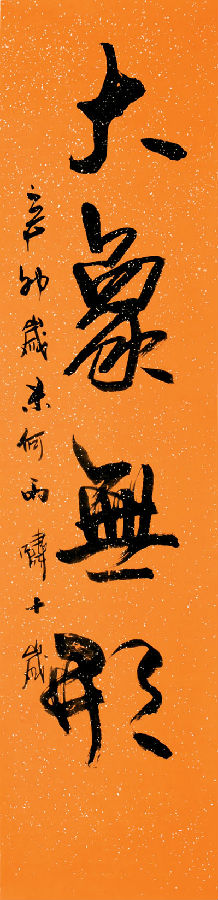 大象無形
辛卯歲末何雨十歲